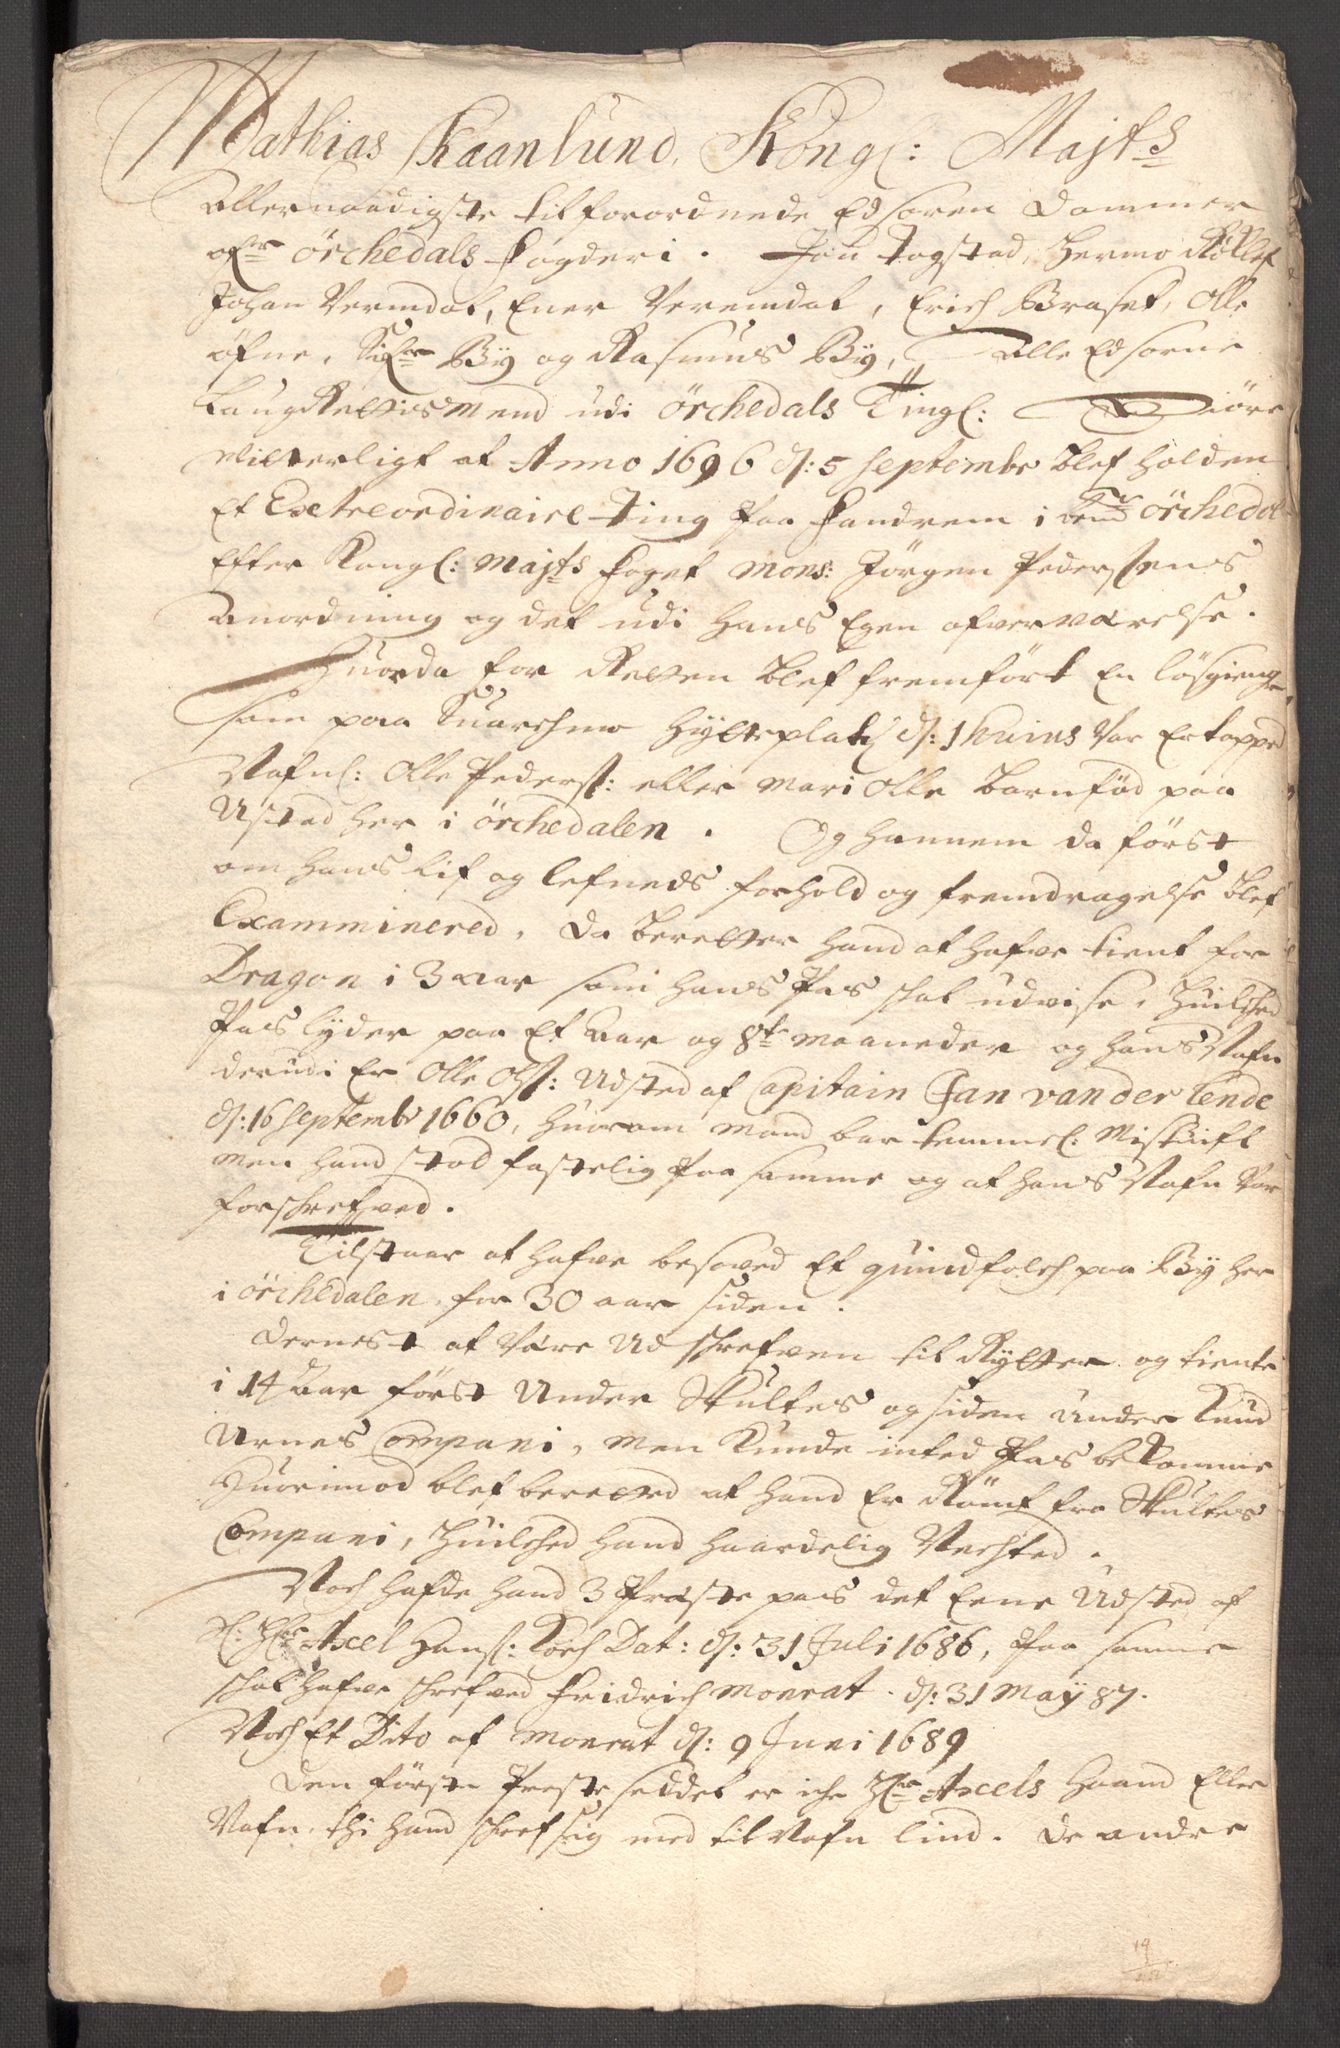 Mathias Skaanlund, Kongl: Majts
allernaadigste tilforordnede Edsoren Dommer
ofr Örchedals fogderi. Jon Togstad, Hermo
Johan Vermdal, Ener Veremdal, Erich Braset, Olle
Öfne, Sifr By og Rasmus By, Alle Edsorne
Laug Rettis Mend udi Örchedals Tingl: Giöre
Vitterligt at Anno 1696 d: 5 Septembr blef holden
Et Extreordinaire Ting paa Fandrem i bemte Örchedal
Efter Kongl: Majts foget Mons: Jörgen Pederssens
anordning og det udi hans Egen ofverværelse.
Huorda for Retten blef fremfört En lösgienger
som paa Suarchmo Hytteplatz d: 1 huius var Ertapped
Nafnl: Olle Peders: eller Mari Olle barnföd paa
Ustad her i Örchedalen. Og hannem da först
om hans lif og lefneds forhold og fremdragelse blef
Examminered, da beretter hand at hafve tient for
Dragon i 3 aar som hans Pas skal udvise, huilched
Pas lyder paa Et aar og 8te maaneder og hans Nafn
derudi Er Olle Ols: Udsted af Capitain Jan van der Lende
d: 16 Septembr 1660, huorom mand bar temmel: Mistuifl
men hand stod fastelig paa samme og at hans Nafn var
forschrefved.
Tilstaar at hafve besoved Et quindfolch paa By her
i Örchedalen for 30 aar siden.
Dernest at være Ud schrefven til Rytter og tiente
i 14 aar först Under Skultes og siden under Knud
Urnes Compani, men kunde inted Pas bekomme
Huorimod blef beretted at hand Er Römt fra Skultes
Compani, huilched hand haardelig Nechted.
Noch hafde hand 3 Præste pas det Eene Udsted af
Hr Axel Hans: Koch Dat: d: 31 Juli 1686, paa samme
schal hafve schrefved Fridrich Monrat d: 31 May 87.
Noch Et Dito af Monrat d: 9 Juni 1689
Den förste Preste seddel er iche Hr Axels Haand Eller
Nafn, thi hand schref sig med til Nafn lind. De andre